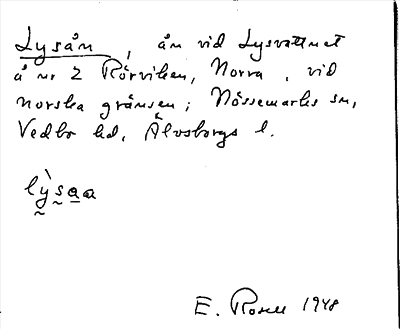 Lysån, ån vid Lysvattnet
å nr 2 Rörviken, Norra, vid
norska gränsen; Nössemarks sn,
Vedbo hd, Älvsborgs l.
lỳsaa
E. Rosell 1948